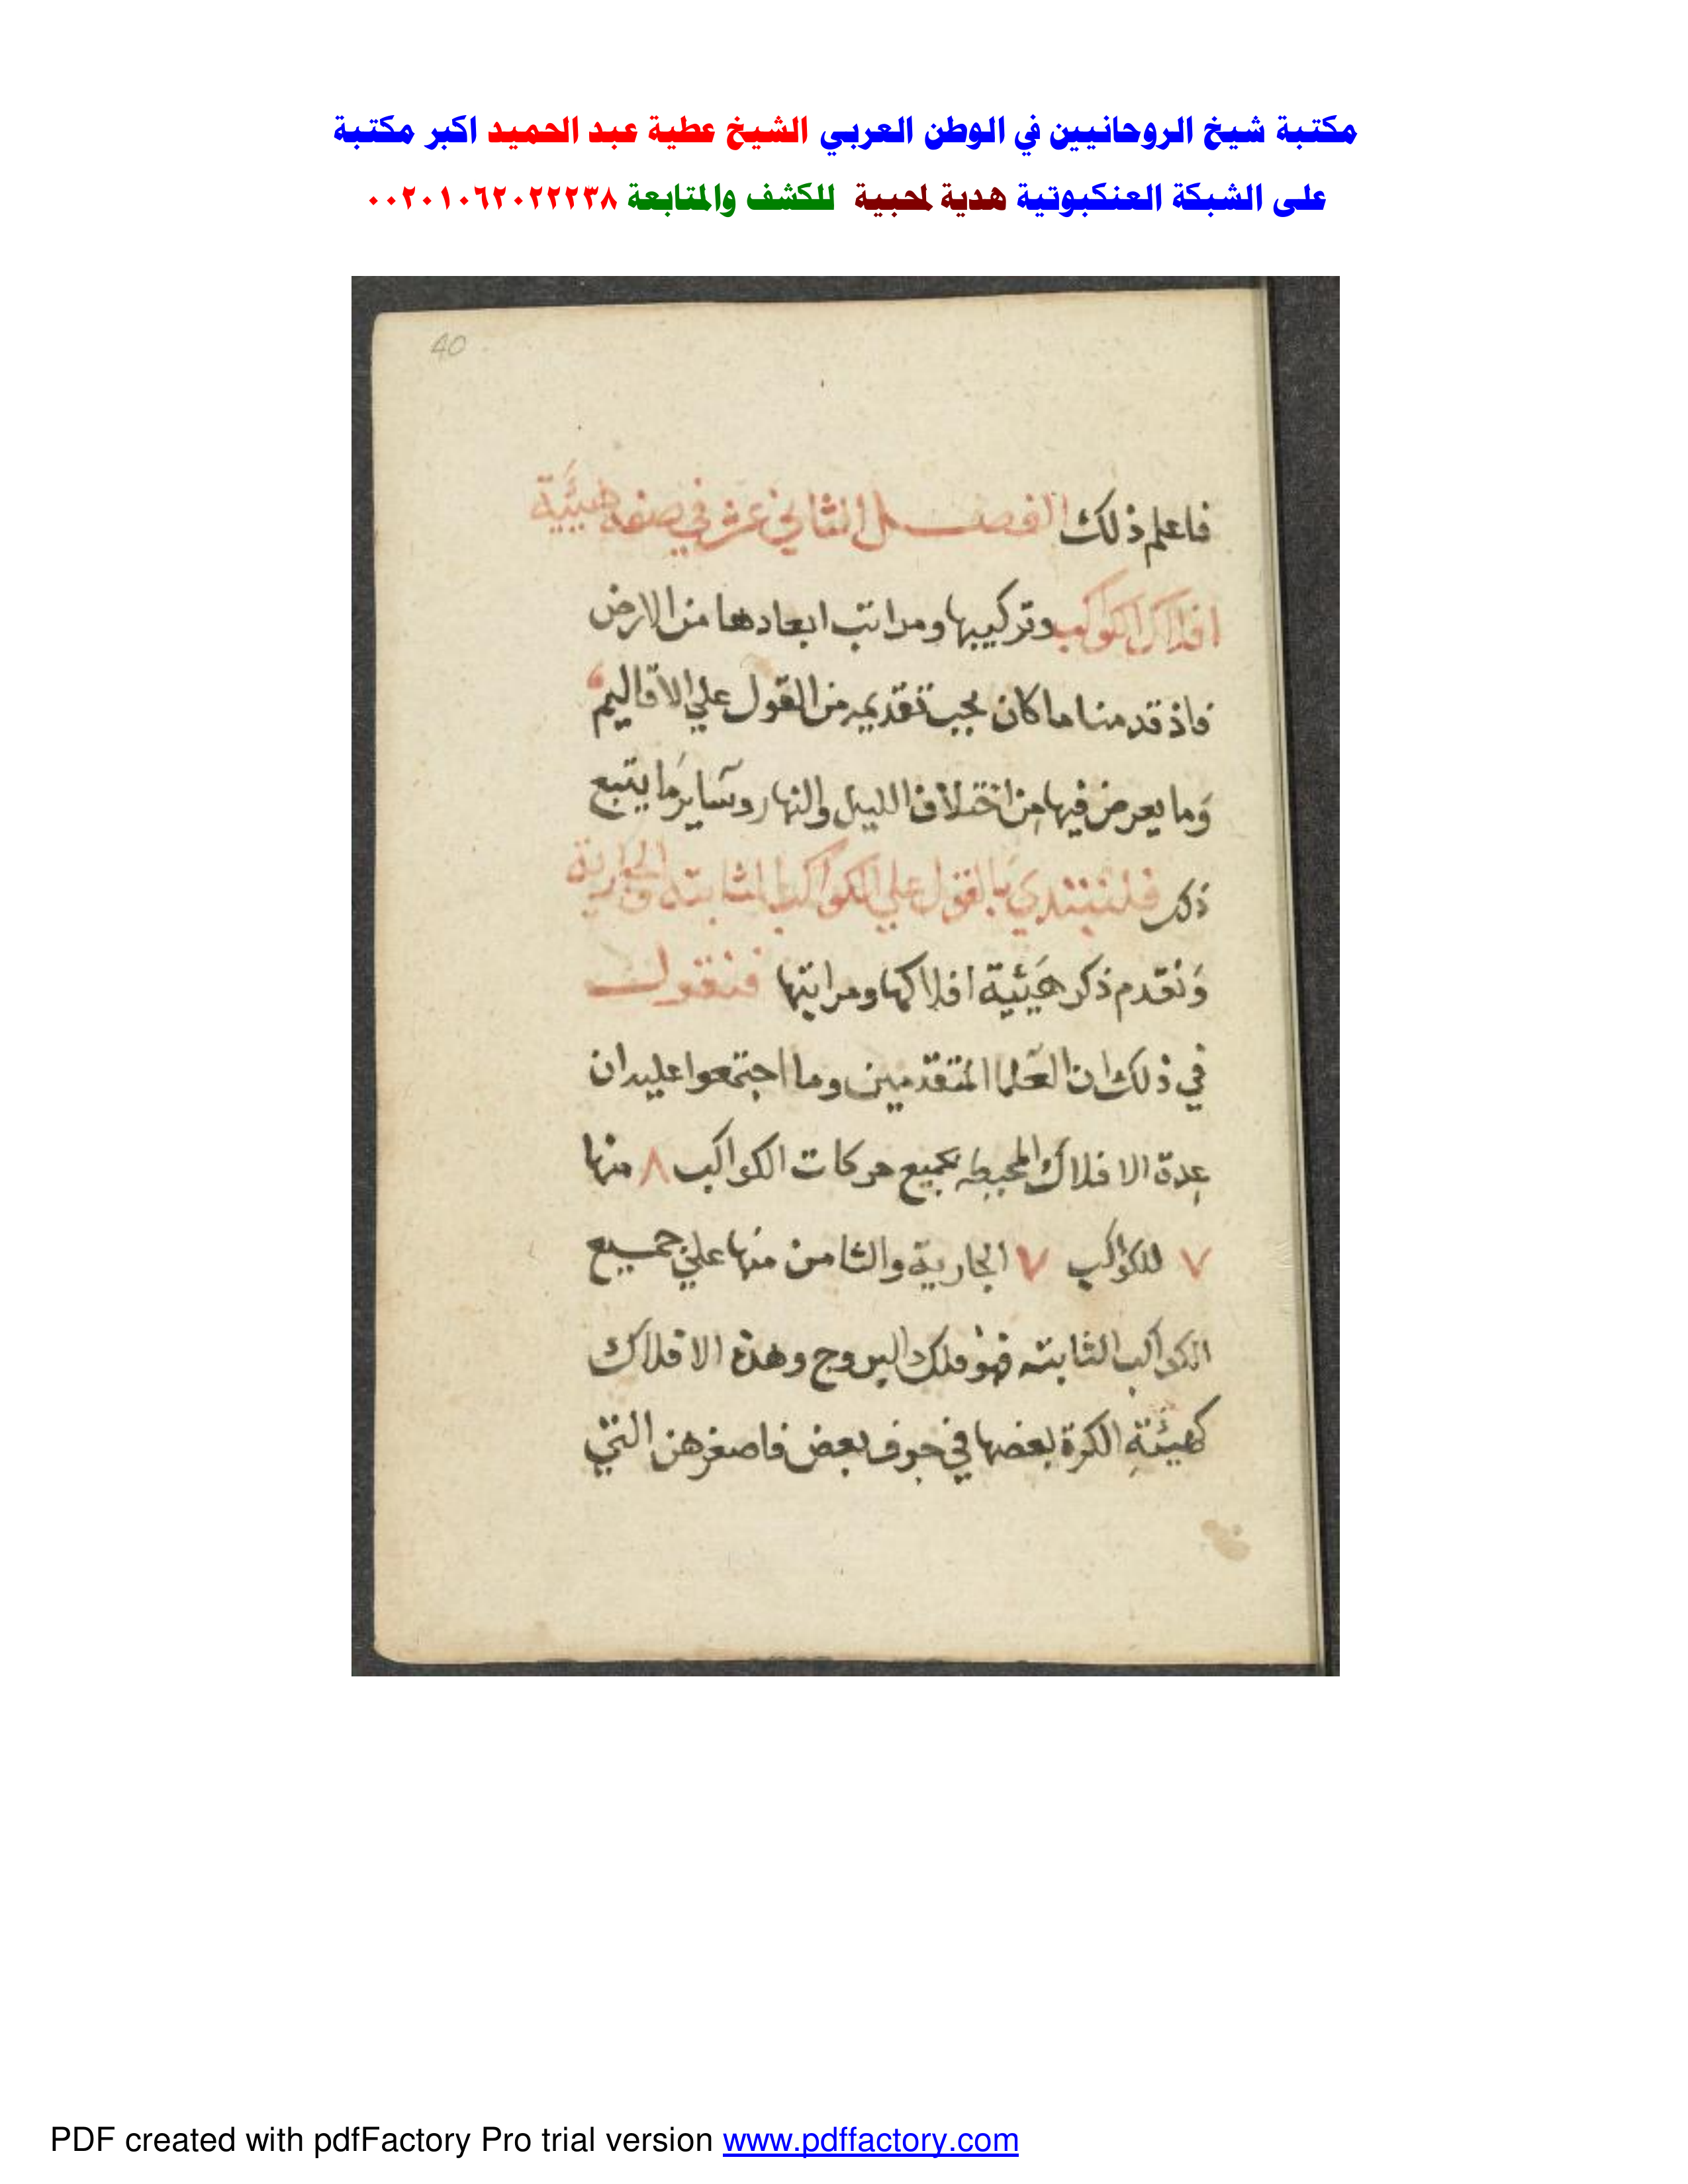 مكتبة شيخ الروحانيين في الوطن العربي الشيخ عطية عبد الحميد اكبر مكتبة
على الشبكة العنكبوتية هدية لمحبية للكشف والمتابعة ٠٠٢٠١٠٦٢٠٢٢٢٣٨
40
فاعلم ذلك الفصل الثاني عشر في صفة هيئية
افلاك الكواكب وتركيبها ومراتب ابعادها من الارض
فاذ قدمنا ما كان يجب تقديمه من القول علي الاقاليم
وما يعرض فيها من اختلاف الليل والنهار وساير ما يتبع
ذكر فلنبتدي بالقول علي الكواكب الثابته والجارية
ونقدم ذكر هيئية افلاكها ومراتبها فنقول
في ذلك ان العلما المتقدمين وما اجتمعوا عليه ان
عدة الافلاك المحيطه بجميع حركات الكواكب ٨ منها
٧ للكواكب ٧ الجارية والثامن منها علي جميع
الكواكب الثابته فهو فلك البروج وهذه الافلاك
كهيئة الكرة بعضها في جوف بعض فاصغرهن التي
PDF created with pdfFactory Pro trial version www.pdffactory.com